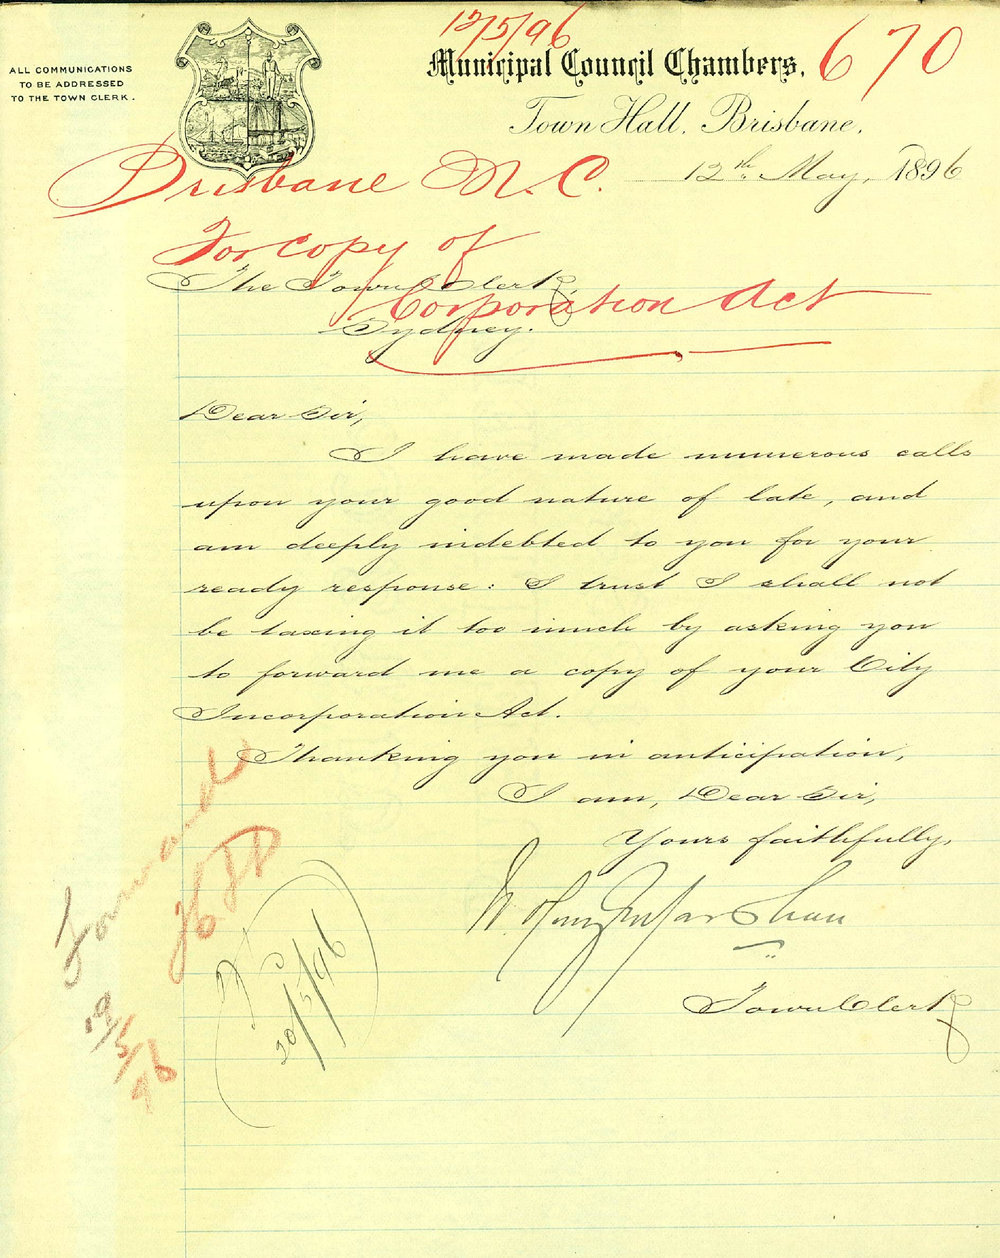 12/5/96
670
ALL COMMUNICATIONS
TO BE ADDRESSED
TO THE TOWN CLERK.
Municipal Council Chambers,
Town Hall, Brisbane,
12th May, 1896
Brisbane M. C.
For Copy of
Corporation Act
The Town Clerk
Sydney.
Dear Sir,
I have made numerous calls
upon your good nature of late, and
am deeply indebted to you for your
ready response: I trust I shall not
be taxing it too much by asking you
to forward me a copy of your City
Incorporation Act.
Thanking you in anticipation,
I am, Dear Sir,
Yours faithfully,
W. Henry G. Marshall
Town Clerk
Forward
19/5/96
20/5/96